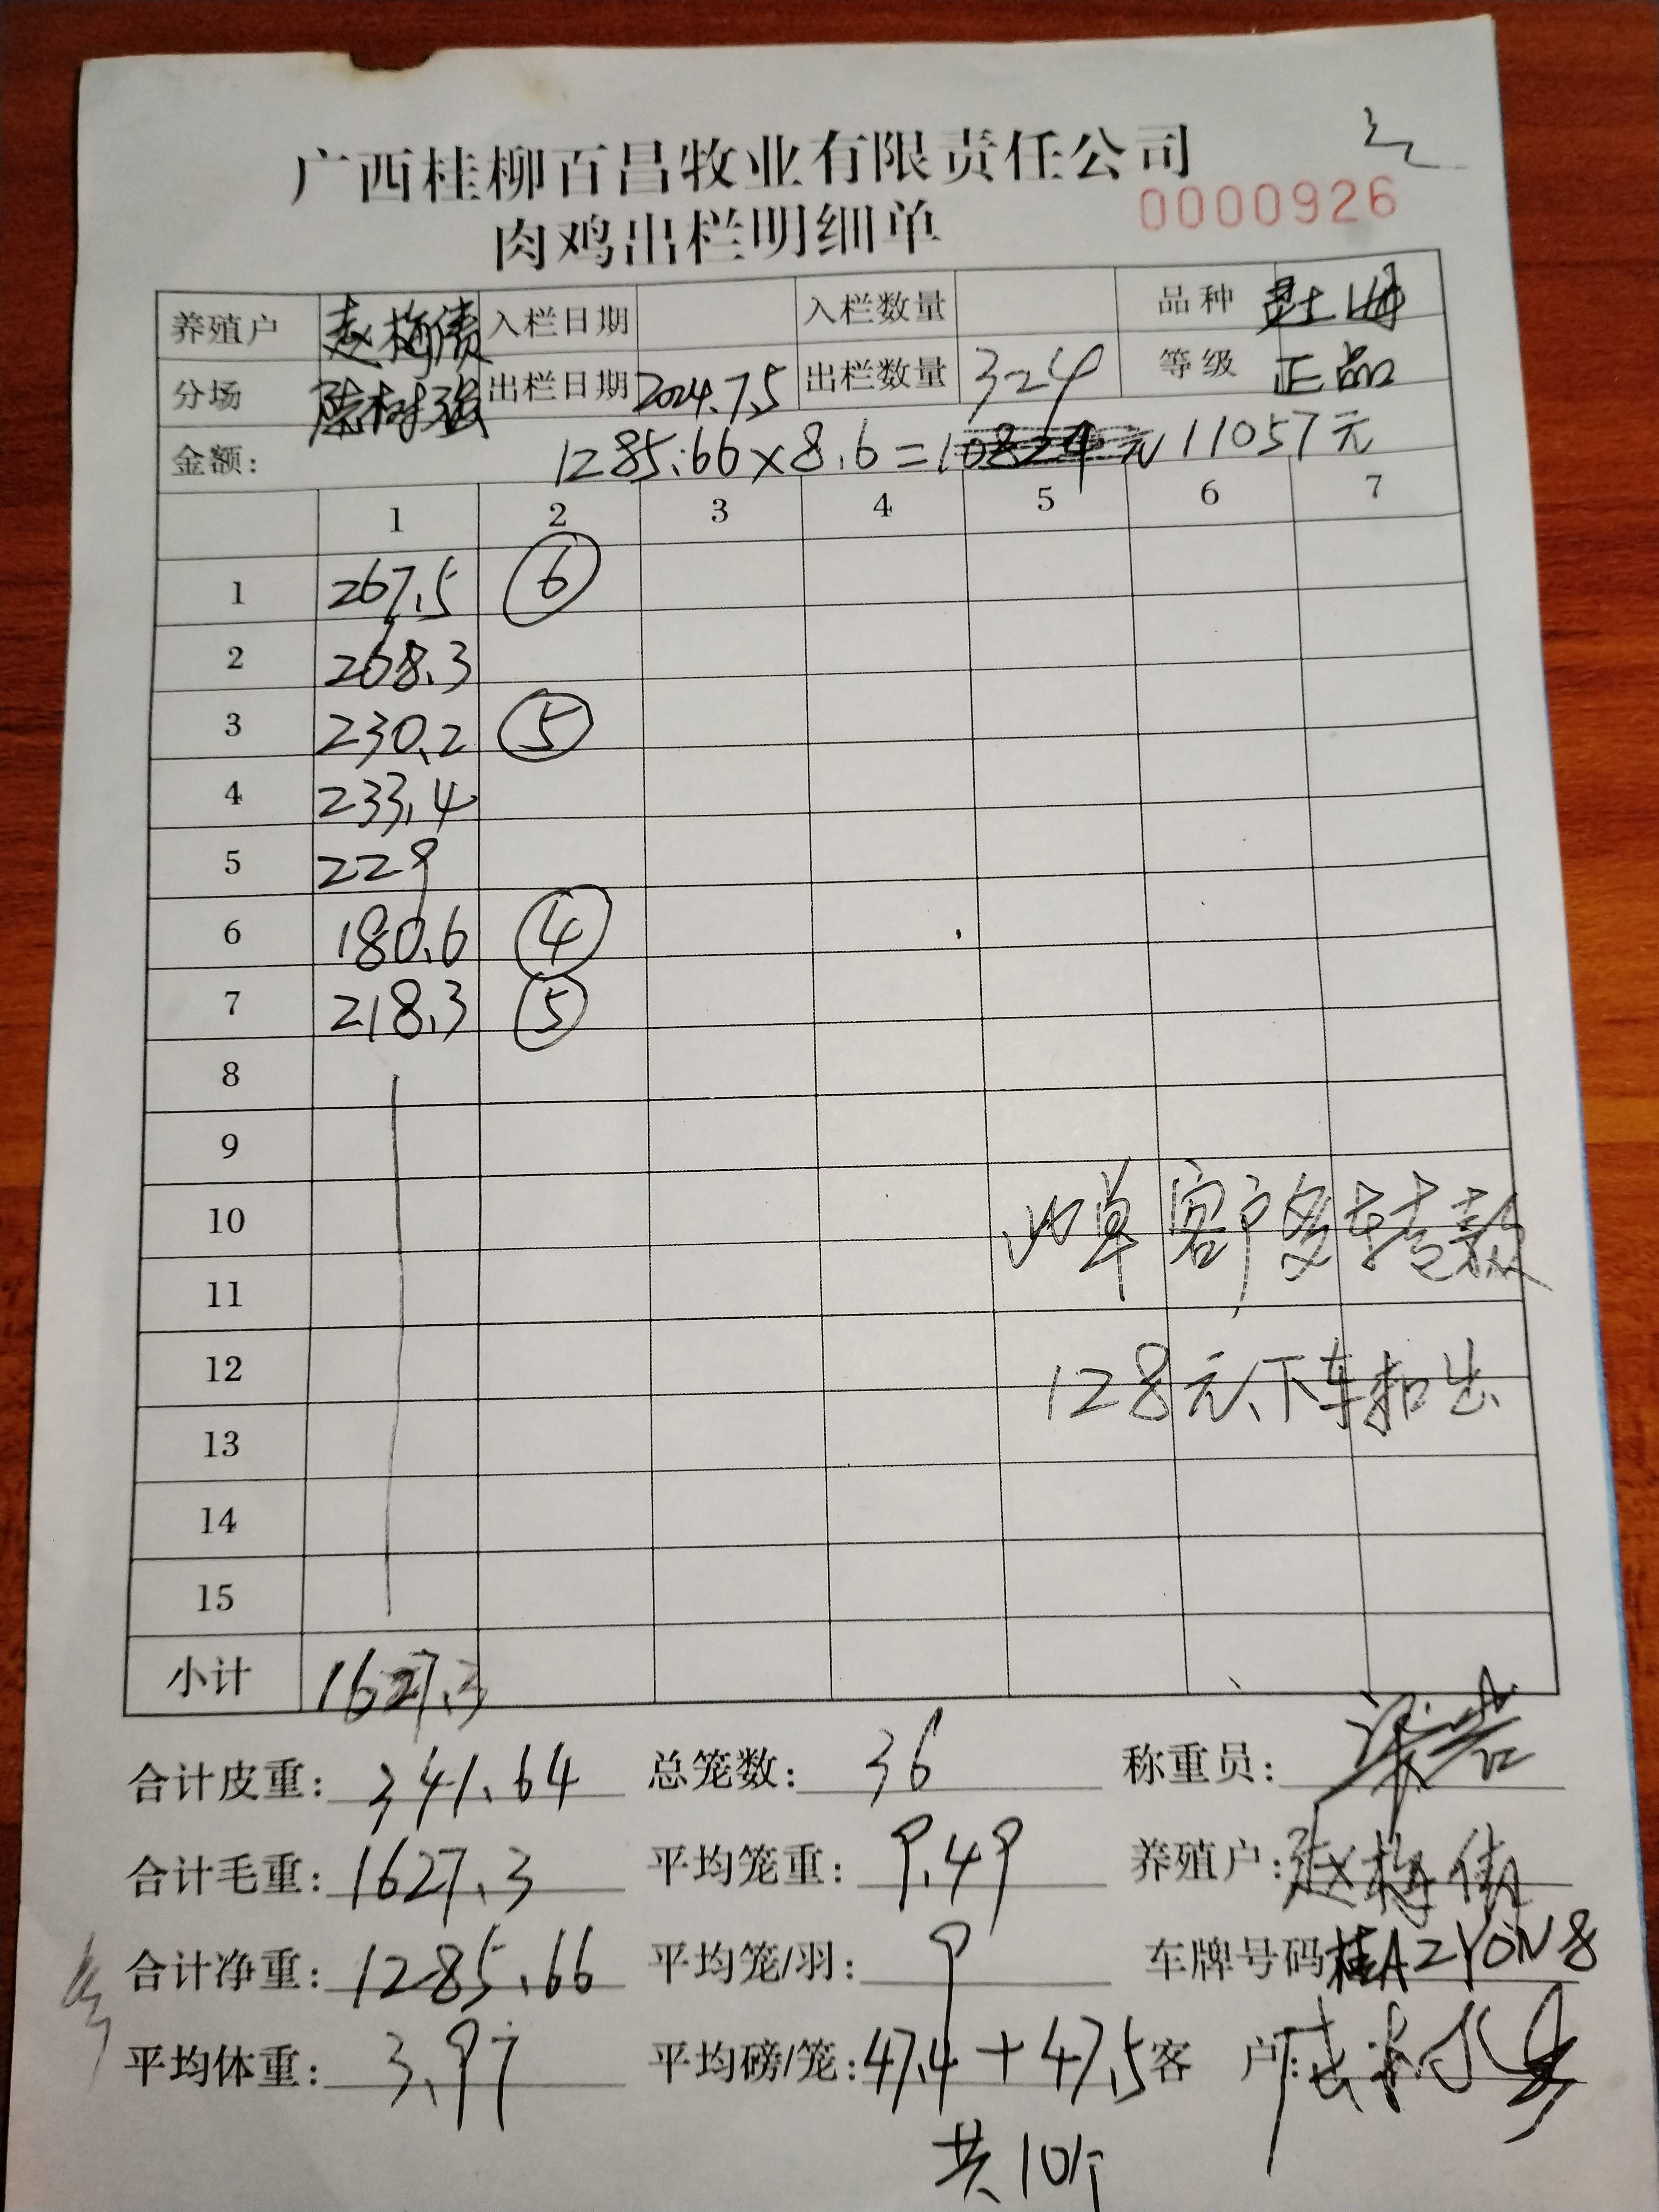 广西桂柳百昌牧业有限责任公司
0000926
肉鸡出栏明细单
养殖户 赵梅 入栏日期 入栏数量 品种
分场 陈树强 出栏日期 2024.7.5 出栏数量 324 等级 正品
金额: 1285.66×8.6=10824元 11057元
1 2 3 4 5 6 7
1 267.5 ⑥
2 268.3
3 230.2 ⑤
4 233.4
5 229
6 180.6 ④
7 218.3 ⑤
8
9
10 此单客户多转款
11
12 128元、下车扣出
13
14
15
小计 1627.3
合计皮重: 341.64 总笼数: 36 称重员:
合计毛重: 1627.3 平均笼重: 9.49 养殖户: 赵梅
合计净重: 1285.66 平均笼/羽: 9 车牌号码 桂AZY0N8
平均体重: 3.97 平均磅/笼: 47.4+47.5 客户:
共10个